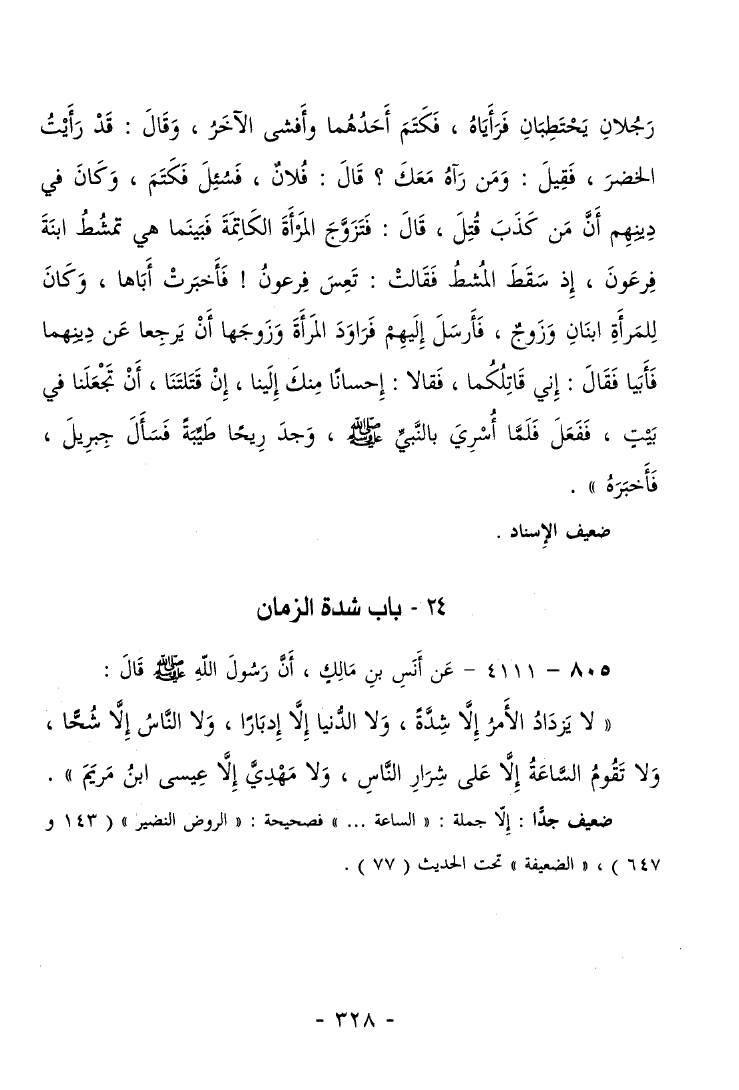 رَجُلانِ يَحْتَطِبَانِ فَرَأَيَاهُ ، فَكَتَمَ أَحَدُهُما وأَفشى الآخَرُ ، وَقَالَ : قَدْ رَأَيْتُ
الخضرَ ، فَقِيلَ : وَمَن رَآهُ مَعَكَ ؟ قَالَ : فُلانٌ ، فَسُئِلَ فَكَتَمَ ، وَكَانَ في
دِينِهِم أَنَّ مَن كَذَبَ قُتِلَ ، قَالَ : فَتَزَوَّجَ المَرْأَةَ الكَاتِمَةَ فَبَينَما هي تَمْشُطُ ابنَةَ
فِرعَونَ ، إِذ سَقَطَ المُشطُ فَقَالتْ : تَعِسَ فِرعونُ ! فَأَخبَرتْ أَبَاها ، وَكَانَ
لِلمَرأَةِ ابنَانِ وَزَوجٌ ، فَأَرسَلَ إِلَيهِمْ فَرَاوَدَ المَرأَةَ وَزَوجَها أَنْ يَرجِعا عَن دِينِهما
فَأَبَيا فَقَالَ : إِني قَاتِلُكُما ، فَقالا : إِحسانًا مِنكَ إِلَينا ، إِنْ قَتَلتَنَا ، أَنْ تَجْعَلَنا في
بَيْتٍ ، فَفَعَلَ فَلَمَّا أُسْرِيَ بالنَّبيِّ ﷺ ، وَجدَ رِيحًا طَيِّبَةً فَسَأَلَ جِبرِيلَ ،
فَأَخبَرَهُ » .
ضعيف الإسناد .
٢٤ - باب شدة الزمان
٨٠٥ – ٤١١١ – عَن أَنَسِ بنِ مَالِكٍ ، أَنَّ رَسُولَ اللّهِ ﷺ قَالَ :
« لا يَزدَادُ الأَمرُ إِلَّا شِدَّةً ، وَلا الدُّنيا إِلَّا إِدبَارًا ، وَلا النَّاسُ إِلَّا شُحًّا ،
وَلا تَقُومُ السَّاعَةُ إِلَّا عَلى شِرَارِ النَّاسِ ، وَلا مَهْدِيَّ إِلَّا عِيسى ابنُ مَريَمَ » .
ضعيف جدًّا : إلّا جملة : « الساعة ... » فصحيحة : « الروض النضير » ( ١٤٣ و
٦٤٧ ) ، « الضعيفة » تحت الحديث ( ٧٧ ) .
- ٣٢٨ -